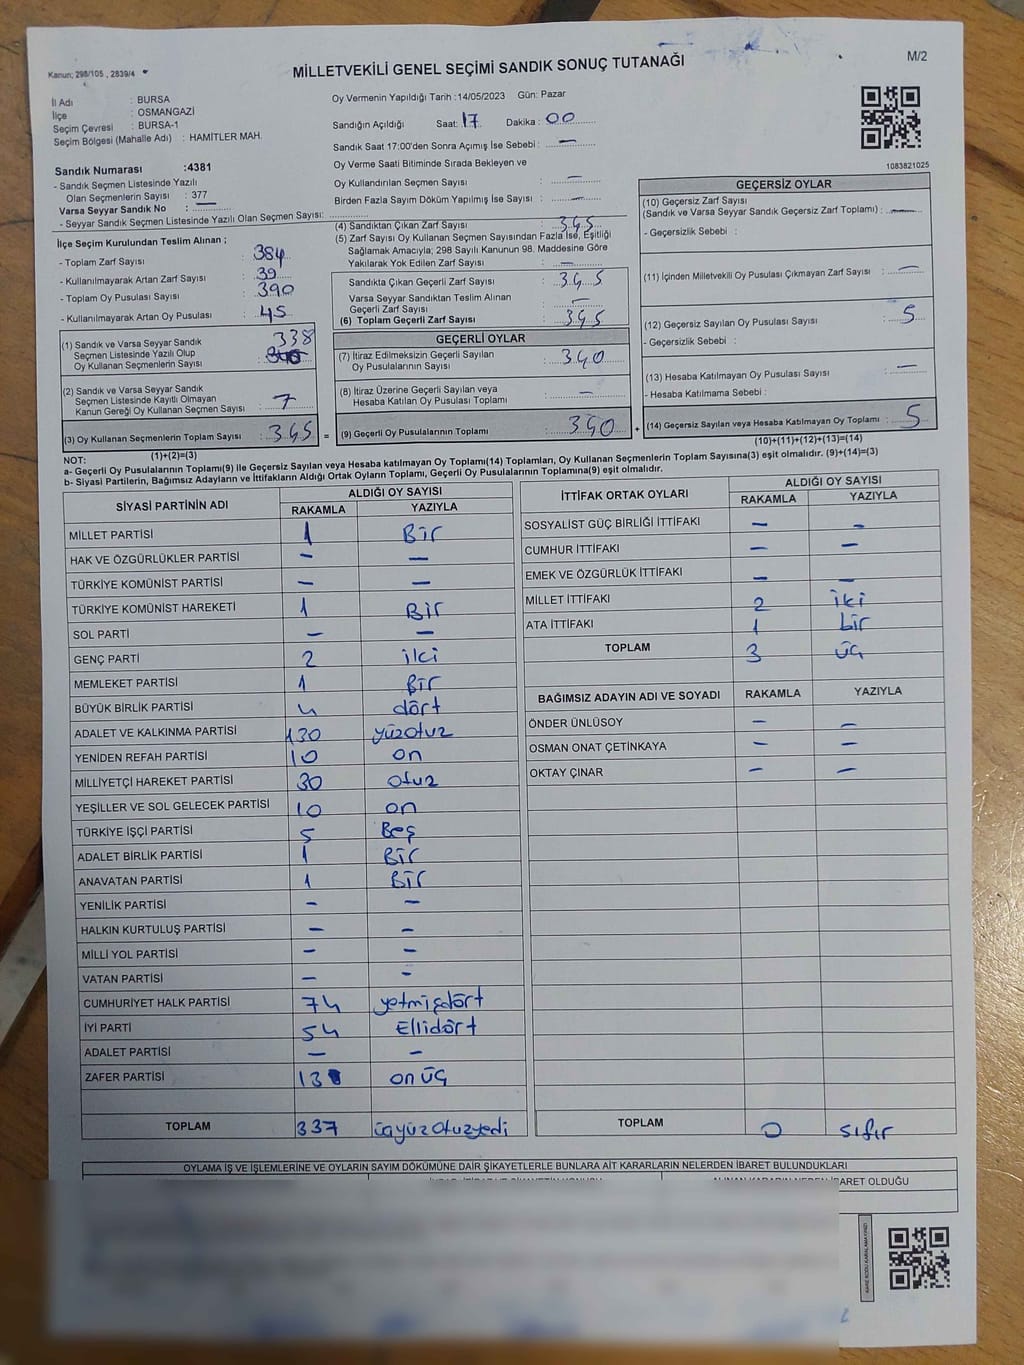 Kanun; 298/105 , 2839/4
MİLLETVEKİLİ GENEL SEÇİMİ SANDIK SONUÇ TUTANAĞI
M/2
İl Adı : BURSA
İlçe : OSMANGAZİ
Seçim Çevresi : BURSA-1
Seçim Bölgesi (Mahalle Adı) : HAMİTLER MAH.
Sandık Numarası :4381
- Sandık Seçmen Listesinde Yazılı
Olan Seçmenlerin Sayısı : 377
Varsa Seyyar Sandık No : —
- Seyyar Sandık Seçmen Listesinde Yazılı Olan Seçmen Sayısı:
Oy Vermenin Yapıldığı Tarih :14/05/2023 Gün: Pazar
Sandığın Açıldığı Saat: 17 Dakika : 00
Sandık Saat 17:00'den Sonra Açımış İse Sebebi : —
Oy Verme Saati Bitiminde Sırada Bekleyen ve
Oy Kullandırılan Seçmen Sayısı : —
Birden Fazla Sayım Döküm Yapılmış İse Sayısı : —
1083821025
İlçe Seçim Kurulundan Teslim Alınan ;
- Toplam Zarf Sayısı : 384
- Kullanılmayarak Artan Zarf Sayısı : 39
- Toplam Oy Pusulası Sayısı : 390
- Kullanılmayarak Artan Oy Pusulası : 45
(1) Sandık ve Varsa Seyyar Sandık
Seçmen Listesinde Yazılı Olup
Oy Kullanan Seçmenlerin Sayısı : 338
(2) Sandık ve Varsa Seyyar Sandık
Seçmen Listesinde Kayıtlı Olmayan
Kanun Gereği Oy Kullanan Seçmen Sayısı : 7
(3) Oy Kullanan Seçmenlerin Toplam Sayısı : 345
(1)+(2)=(3)
(4) Sandıktan Çıkan Zarf Sayısı : 345
(5) Zarf Sayısı Oy Kullanan Seçmen Sayısından Fazla İse, Eşitliği
Sağlamak Amacıyla; 298 Sayılı Kanunun 98. Maddesine Göre
Yakılarak Yok Edilen Zarf Sayısı : —
Sandıkta Çıkan Geçerli Zarf Sayısı : 345
Varsa Seyyar Sandıktan Teslim Alınan
Geçerli Zarf Sayısı : —
(6) Toplam Geçerli Zarf Sayısı : 345
GEÇERLİ OYLAR
(7) İtiraz Edilmeksizin Geçerli Sayılan
Oy Pusulalarının Sayısı : 340
(8) İtiraz Üzerine Geçerli Sayılan veya
Hesaba Katılan Oy Pusulası Toplamı : —
= (9) Geçerli Oy Pusulalarının Toplamı : 340
GEÇERSİZ OYLAR
(10) Geçersiz Zarf Sayısı
(Sandık ve Varsa Seyyar Sandık Geçersiz Zarf Toplamı) : —
- Geçersizlik Sebebi :
(11) İçinden Milletvekili Oy Pusulası Çıkmayan Zarf Sayısı : —
(12) Geçersiz Sayılan Oy Pusulası Sayısı : 5
- Geçersizlik Sebebi :
(13) Hesaba Katılmayan Oy Pusulası Sayısı : —
- Hesaba Katılmama Sebebi :
+ (14) Geçersiz Sayılan veya Hesaba Katılmayan Oy Toplamı : 5
(10)+(11)+(12)+(13)=(14)
NOT:
a- Geçerli Oy Pusulalarının Toplamı(9) ile Geçersiz Sayılan veya Hesaba katılmayan Oy Toplamı(14) Toplamları, Oy Kullanan Seçmenlerin Toplam Sayısına(3) eşit olmalıdır. (9)+(14)=(3)
b- Siyasi Partilerin, Bağımsız Adayların ve İttifakların Aldığı Ortak Oyların Toplamı, Geçerli Oy Pusulalarının Toplamına(9) eşit olmalıdır.
SİYASİ PARTİNİN ADI ALDIĞI OY SAYISI
RAKAMLA YAZIYLA
MİLLET PARTİSİ 1 Bir
HAK VE ÖZGÜRLÜKLER PARTİSİ — —
TÜRKİYE KOMÜNİST PARTİSİ — —
TÜRKİYE KOMÜNİST HAREKETİ 1 Bir
SOL PARTİ — —
GENÇ PARTİ 2 iki
MEMLEKET PARTİSİ 1 Bir
BÜYÜK BİRLİK PARTİSİ 4 dört
ADALET VE KALKINMA PARTİSİ 130 yüzotuz
YENİDEN REFAH PARTİSİ 10 on
MİLLİYETÇİ HAREKET PARTİSİ 30 otuz
YEŞİLLER VE SOL GELECEK PARTİSİ 10 on
TÜRKİYE İŞÇİ PARTİSİ 5 Beş
ADALET BİRLİK PARTİSİ 1 Bir
ANAVATAN PARTİSİ 1 Bir
YENİLİK PARTİSİ — —
HALKIN KURTULUŞ PARTİSİ — —
MİLLİ YOL PARTİSİ — —
VATAN PARTİSİ — —
CUMHURİYET HALK PARTİSİ 74 yetmişdört
İYİ PARTİ 54 Ellidört
ADALET PARTİSİ — —
ZAFER PARTİSİ 13 on üç
TOPLAM 337 üçyüzotuzyedi
İTTİFAK ORTAK OYLARI ALDIĞI OY SAYISI
RAKAMLA YAZIYLA
SOSYALİST GÜÇ BİRLİĞİ İTTİFAKI — —
CUMHUR İTTİFAKI — —
EMEK VE ÖZGÜRLÜK İTTİFAKI — —
MİLLET İTTİFAKI 2 iki
ATA İTTİFAKI 1 bir
TOPLAM 3 üç
BAĞIMSIZ ADAYIN ADI VE SOYADI RAKAMLA YAZIYLA
ÖNDER ÜNLÜSOY — —
OSMAN ONAT ÇETİNKAYA — —
OKTAY ÇINAR — —
TOPLAM 0 sıfır
OYLAMA İŞ VE İŞLEMLERİNE VE OYLARIN SAYIM DÖKÜMÜNE DAİR ŞİKAYETLERLE BUNLARA AİT KARARLARIN NELERDEN İBARET BULUNDUKLARI
ALINAN KARARIN NEDEN İBARET OLDUĞU